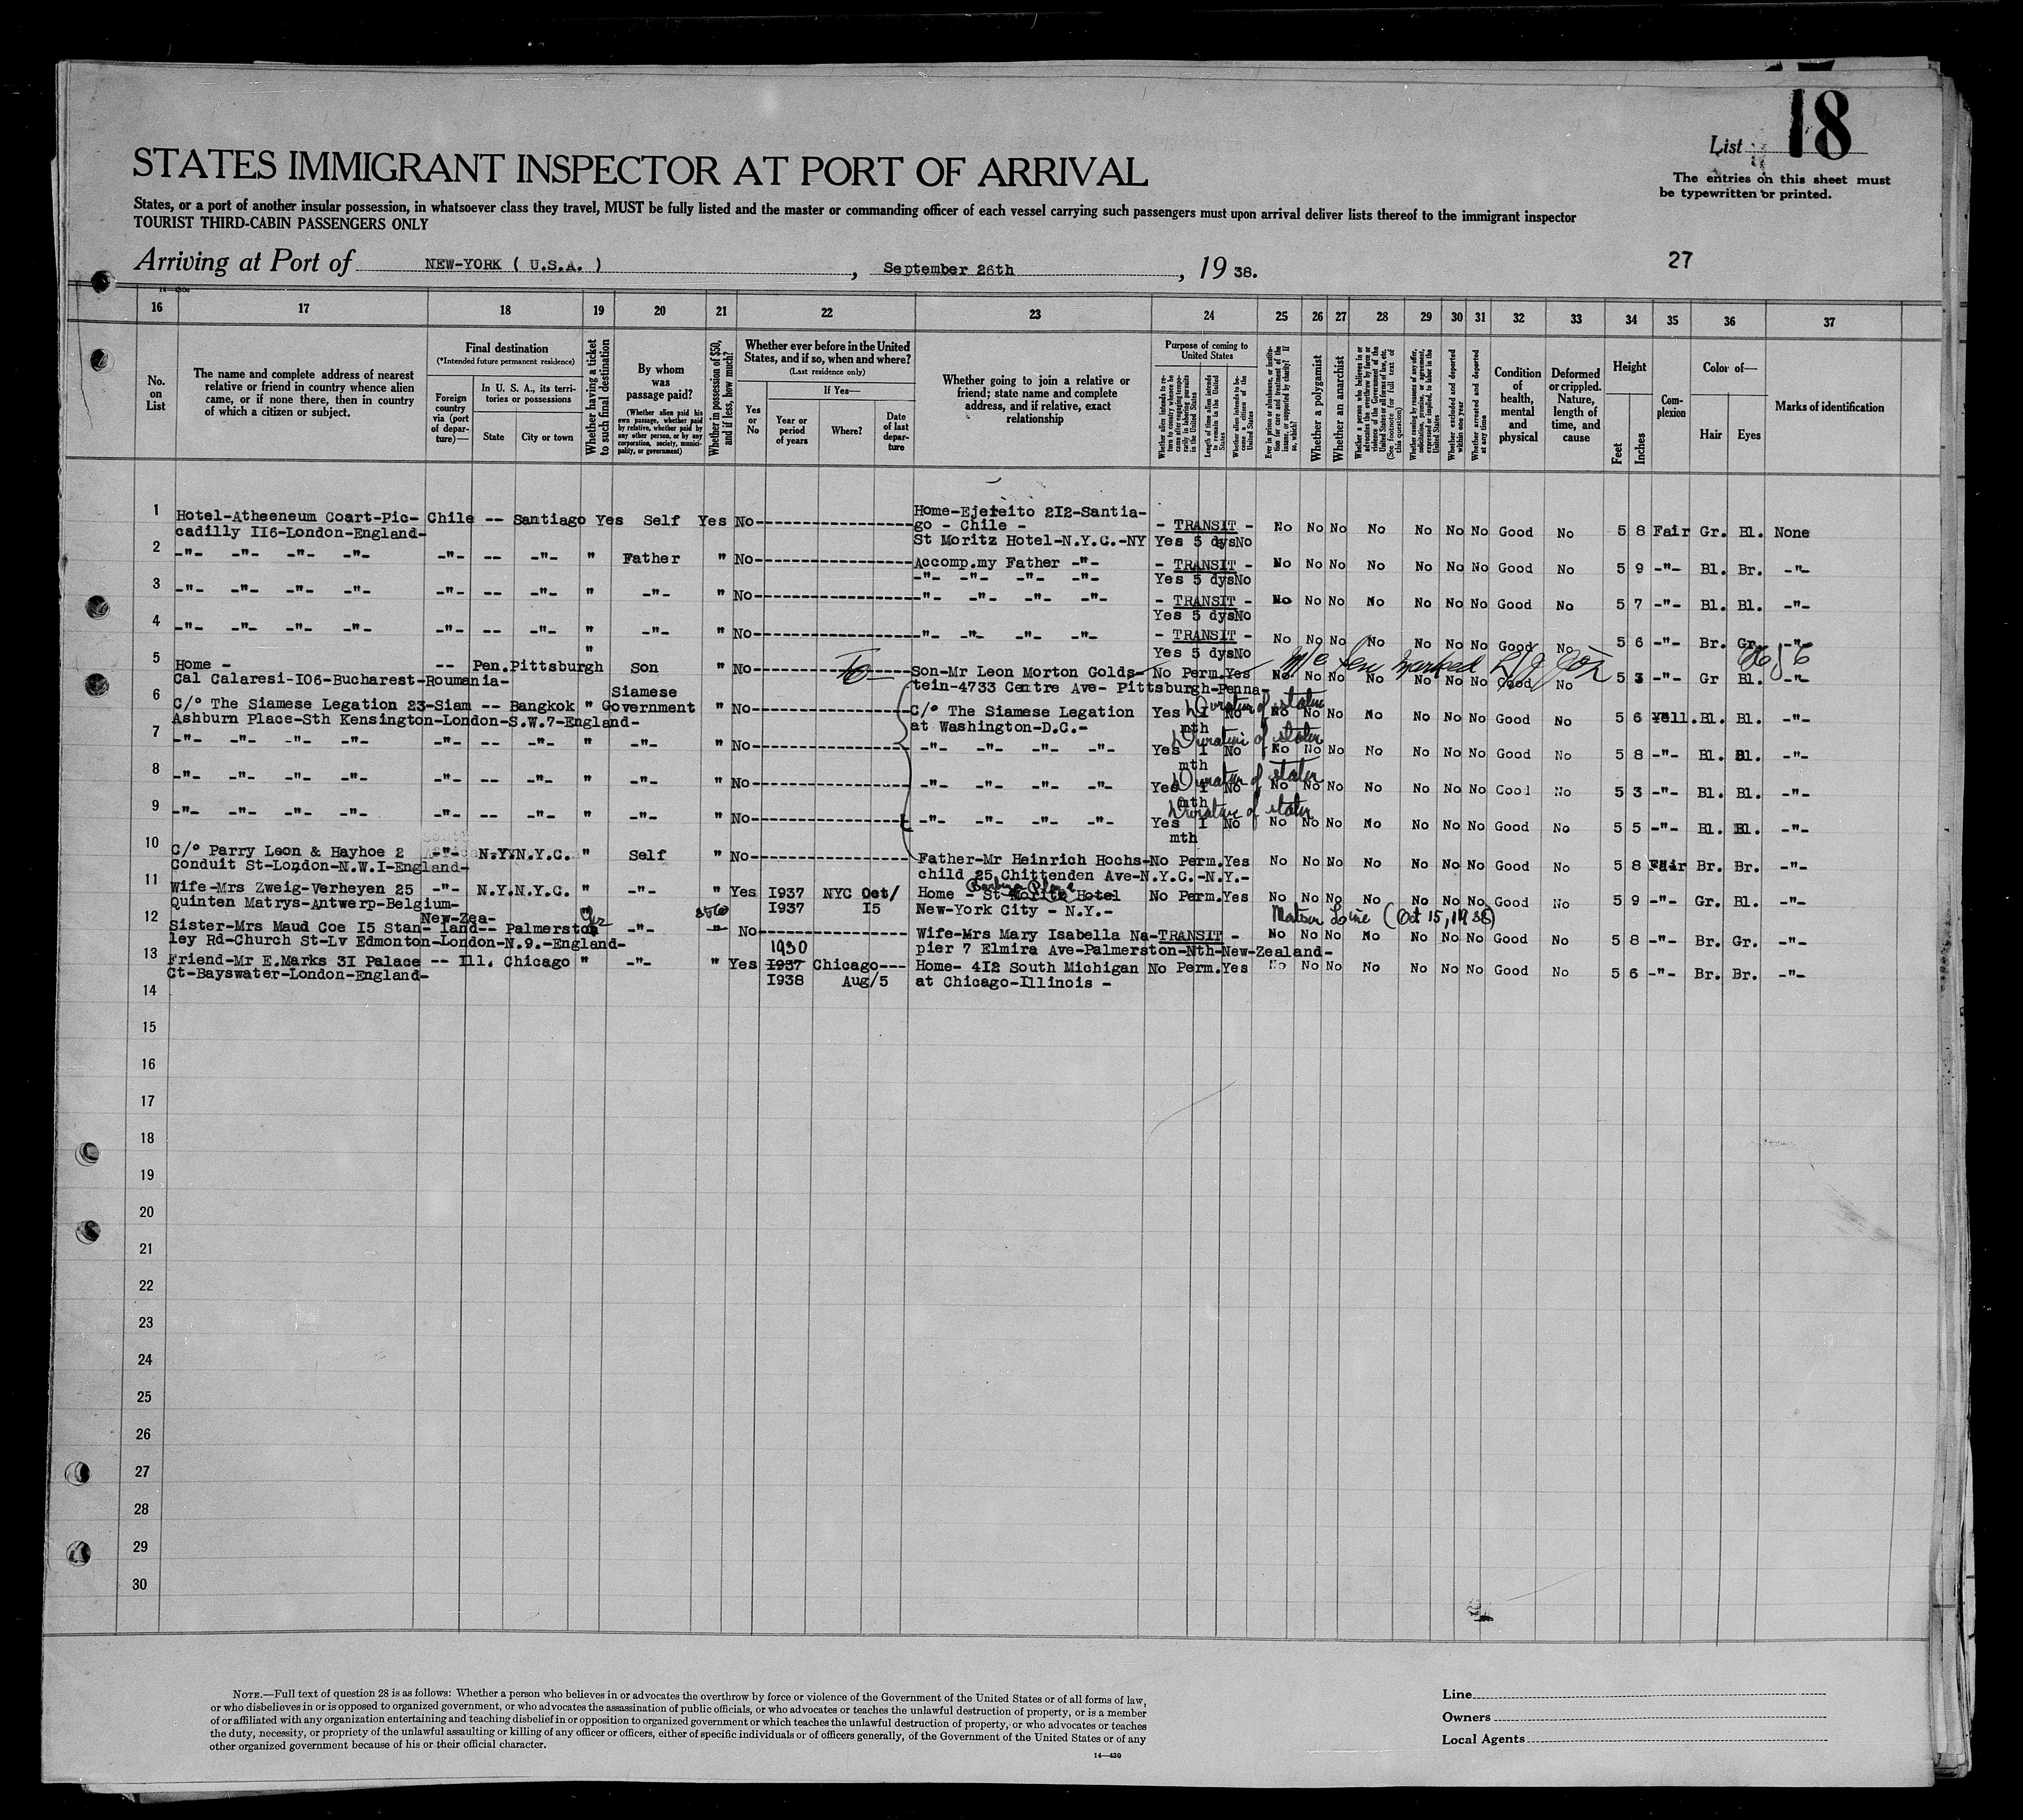 List 18
The entries on this sheet must
be typewritten or printed.
STATES IMMIGRANT INSPECTOR AT PORT OF ARRIVAL
States, or a port of another insular possession, in whatsoever class they travel, MUST be fully listed and the master or commanding officer of each vessel carrying such passengers must upon arrival deliver lists thereof to the immigrant inspector
TOURIST THIRD-CABIN PASSENGERS ONLY
Arriving at Port of NEW-YORK ( U.S.A. ) , September 26th , 19 38.
27
16 17 18 19 20 21 22 23 24 25 26 27 28 29 30 31 32 33 34 35 36 37
No. on List
The name and complete address of nearest relative or friend in country whence alien came, or if none there, then in country of which a citizen or subject.
Final destination
(*Intended future permanent residence)
Foreign country via (port of departure)—
In U. S. A., its territories or possessions
State
City or town
Whether having a ticket to such final destination
By whom was passage paid?
(Whether alien paid his own passage, whether paid by relative, whether paid by any other person, or by any corporation, society, municipality, or government)
Whether in possession of $50, and if less, how much?
Whether ever before in the United States, and if so, when and where?
(Last residence only)
Yes or No
If Yes—
Year or period of years
Where?
Date of last departure
Whether going to join a relative or friend; state name and complete address, and if relative, exact relationship
Purpose of coming to United States
Whether alien intends to return to country whence he came after engaging temporarily in laboring pursuits in the United States
Length of time alien intends to remain in the United States
Whether alien intends to become a citizen of the United States
Ever in prison or almshouse, or institution for care and treatment of the insane, or supported by charity? If so, which?
Whether a polygamist
Whether an anarchist
Whether a person who believes in or advocates the overthrow by force or violence of the Government of the United States or all forms of law, etc. (See footnote for full text of this question)
Whether coming by reasons of any offer, solicitation, promise, or agreement, expressed or implied, to labor in the United States
Whether excluded and deported within one year
Whether arrested and deported at any time
Condition of health, mental and physical
Deformed or crippled. Nature, length of time, and cause
Height
Feet
Inches
Complexion
Color of—
Hair
Eyes
Marks of identification
1 Hotel-Atheeneum Coart-Pic- Chile -- Santiago Yes Self Yes No Home-Ejereito 212-Santia- - TRANSIT - No No No No No No No Good No 5 8 Fair Gr. Bl. None
cadilly II6-London-England- go - Chile - Yes 5 dys No
St Moritz Hotel-N.Y.C.-NY
2 -"- -"- -"- -"- -"- -- -"- " Father " No Accomp.my Father -"- - TRANSIT - No No No No No No No Good No 5 9 -"- Bl. Br. -"-
-"- -"- -"- -"- Yes 5 dys No
3 -"- -"- -"- -"- -"- -- -"- " -"- " No -"- -"- -"- -"- - TRANSIT - No No No No No No No Good No 5 7 -"- Bl. Bl. -"-
Yes 5 dys No
4 -"- -"- -"- -"- -"- -- -"- " -"- " No -"- -"- -"- -"- - TRANSIT - No No No No No No No Good No 5 6 -"- Br. Gr. -"-
Yes 5 dys No
5 Home - -- Pen. Pittsburgh " Son " No Son-Mr Leon Morton Golds- No Perm. Yes No No No No No No No Good No 5 3 -"- Gr Bl. -"-
Cal Calaresi-I06-Bucharest-Roumania- tein-4733 Centre Ave- Pittsburgh-Penna-
6 C/° The Siamese Legation 23-Siam -- Bangkok " Siamese Government " No C/° The Siamese Legation Yes I mth No Duration of status No No No No No No No Good No 5 6 Yell. Bl. Bl. -"-
Ashburn Place-Sth Kensington-London-S.W.7-England- at Washington-D.C.-
7 -"- -"- -"- -"- -"- -- -"- " -"- " No -"- -"- -"- -"- Yes I mth No Duration of status No No No No No No No Good No 5 8 -"- Bl. Bl. -"-
8 -"- -"- -"- -"- -"- -- -"- " -"- " No -"- -"- -"- -"- Yes I mth No Duration of status No No No No No No No Good No 5 3 -"- Bl. Bl. -"-
9 -"- -"- -"- -"- -"- -- -"- " -"- " No -"- -"- -"- -"- Yes I mth No Duration of status No No No No No No No Good No 5 5 -"- Bl. Bl. -"-
10 C/° Parry Leon & Hayhoe 2 -"- N.Y. N.Y.C. " Self " No Father-Mr Heinrich Hochs- No Perm. Yes No No No No No No No Good No 5 8 Fair Br. Br. -"-
Conduit St-London-N.W.I-England- child 25 Chittenden Ave-N.Y.C.-N.Y.-
11 Wife-Mrs Zweig-Verheyen 25 -"- N.Y. N.Y.C. " -"- " Yes I937 NYC Oct/ Home - St Moritz Hotel Barbizon Plaza No Perm. Yes No No No No No No No Good No 5 9 -"- Gr. Bl. -"-
Quinten Matrys-Antwerp-Belgium- I937 I5 New-York City - N.Y.-
12 Sister-Mrs Maud Coe I5 Stan- New-Zealand -- Palmerston " Yes -"- -"- No Wife-Mrs Mary Isabella Na- TRANSIT - Matson Line (Oct 15, 1938) No No No No No No No Good No 5 8 -"- Br. Gr. -"-
ley Rd-Church St-Lv Edmonton-London-N.9.-England- pier 7 Elmira Ave-Palmerston-Nth-New-Zealand-
13 Friend-Mr E.Marks 3I Palace -- Ill. Chicago " -"- " Yes 1930 I937 Chicago--- Home- 4I2 South Michigan No Perm. Yes No No No No No No No Good No 5 6 -"- Br. Br. -"-
Ct-Bayswater-London-England- I938 Aug/5 at Chicago-Illinois -
14
15
16
17
18
19
20
21
22
23
24
25
26
27
28
29
30
NOTE.—Full text of question 28 is as follows: Whether a person who believes in or advocates the overthrow by force or violence of the Government of the United States or of all forms of law,
or who disbelieves in or is opposed to organized government, or who advocates the assassination of public officials, or who advocates or teaches the unlawful destruction of property, or is a member
of or affiliated with any organization entertaining and teaching disbelief in or opposition to organized government or which teaches the unlawful destruction of property, or who advocates or teaches
the duty, necessity, or propriety of the unlawful assaulting or killing of any officer or officers, either of specific individuals or of officers generally, of the Government of the United States or of any
other organized government because of his or their official character.
14—430
Line
Owners
Local Agents